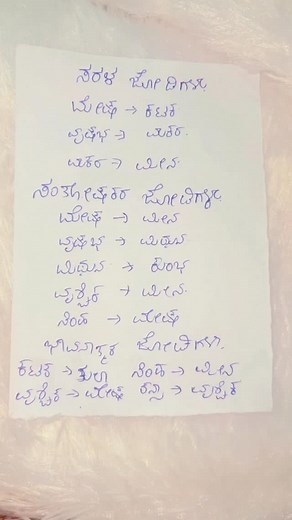 ಸರಳ ಜೋಡಿಗಳು
ಮೇಷ → ಕಟಕ
ವೃಷಭ → ಮಕರ.
ಮಕರ → ಮೀನ.
ಸಂತೋಷಕರ ಜೋಡಿಗಳು
ಮೇಷ → ಮೀನ
ವೃಷಭ → ಮಿಥುನ
ಮಿಥುನ → ಕುಂಭ
ವೃಶ್ಚಿಕ → ಮೀನ.
ಸಿಂಹ → ಮೇಷ
ಭಾವನಾತ್ಮಕ ಜೋಡಿಗಳು.
ಕಟಕ → ತುಲಾ ಸಿಂಹ → ಮೀನ
ವೃಶ್ಚಿಕ → ಮೇಷ ಕನ್ಯಾ → ವೃಶ್ಚಿಕ